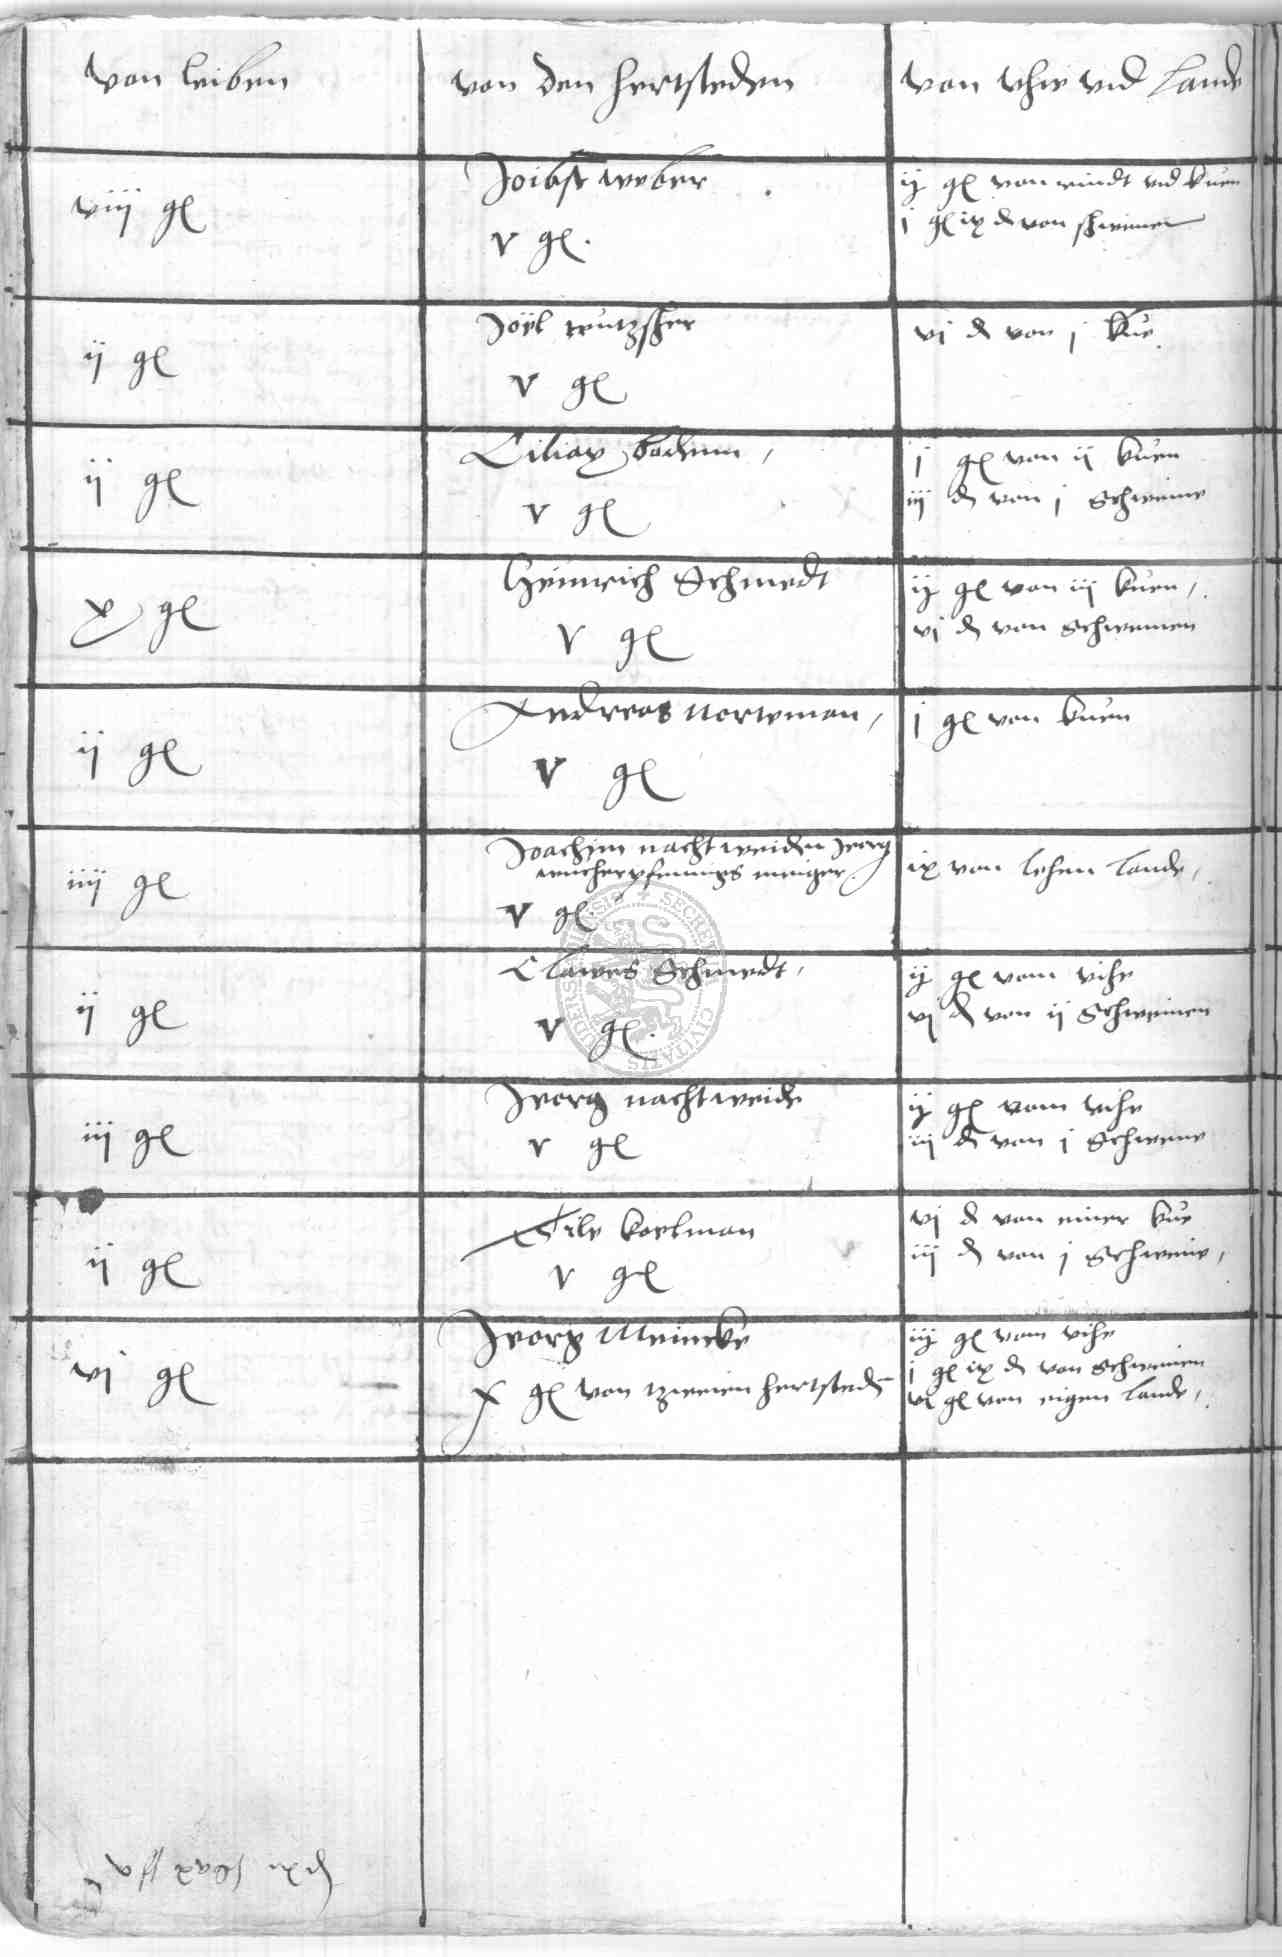 von leiben
von den hertsteden
von vhie vnd lande
viij gl
Joibst weber
v gl.
ij gl von rindt vnd kuen
j gl ix d von schweinen
ij gl
v gl
vj d von j kue
ij gl
Ciliax
v gl
j gl von ij kuen
iij d von j Schweine
x gl
Heinrich Schmedt
v gl
ij gl von iij kuen,
vj d von schweinen
ij gl
Andreas
v gl
j gl von kuen
iiij gl
Joachim nachtweiden Jeorg
v gl.
ix von lehen lande,
ij gl
Clawes Schmedt,
v gl.
ij gl vom vihe
vj d von ij Schweinen
iij gl
Jeorg nachtweide
v gl
ij gl vom vihe
iij d von j Schweine
ij gl
Tile koelman
v gl
vj d von einer kue
iij d von j Schweine,
vj gl
Jeorg Meineke
x gl von tzweien hertsted
iij gl vom vihe
j gl ix d von Schweinen
vj gl von eigen lande,
SECRETUM CIVITATIS